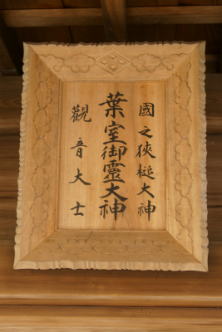 國之狹槌大神
葉室御靈大神
觀音大士